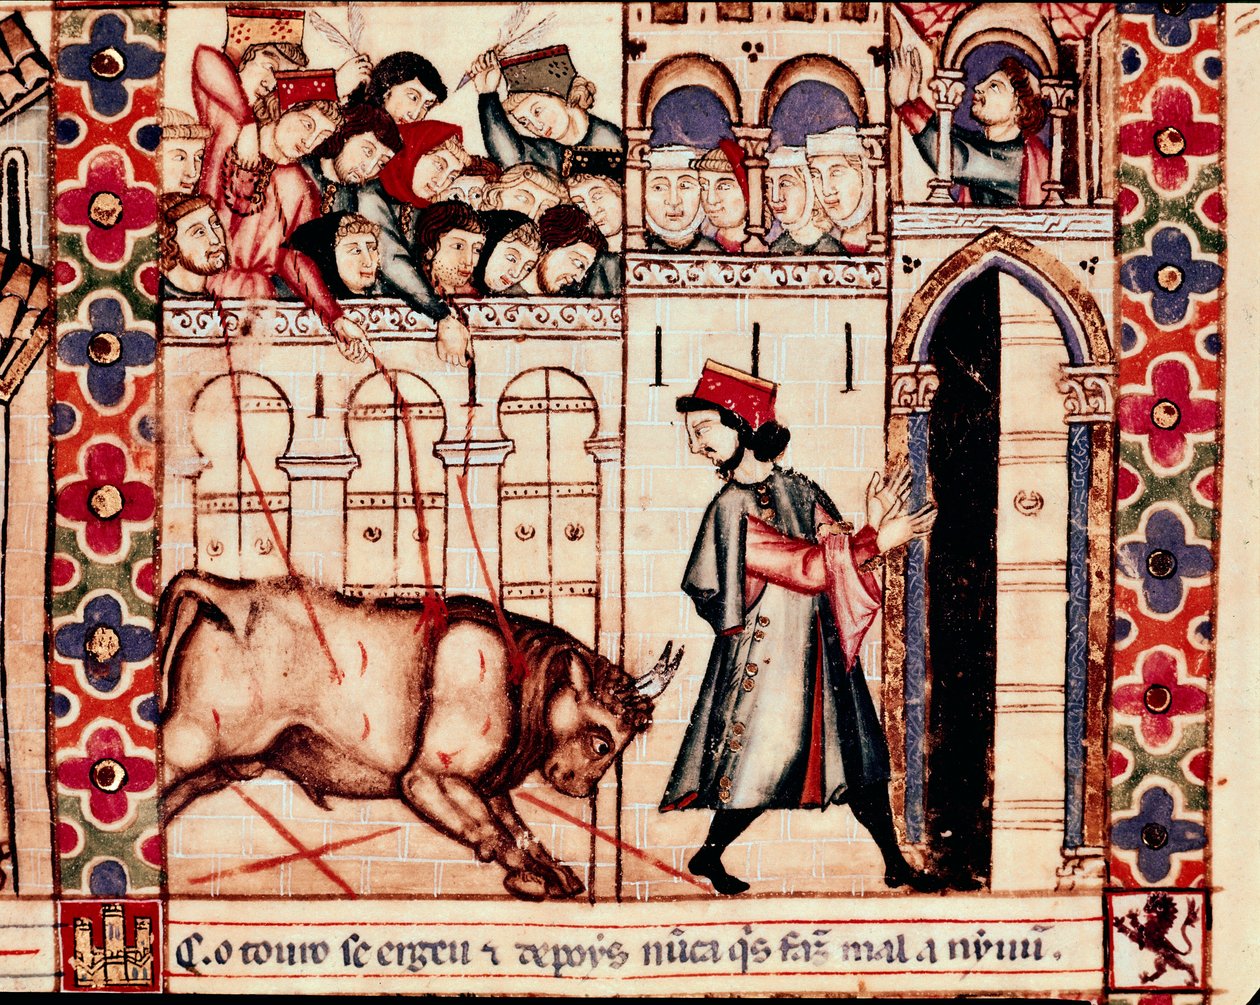 C. o touro se ergeu ⁊ depoys nũca q̃s faz̃ mal a nỹuũ.